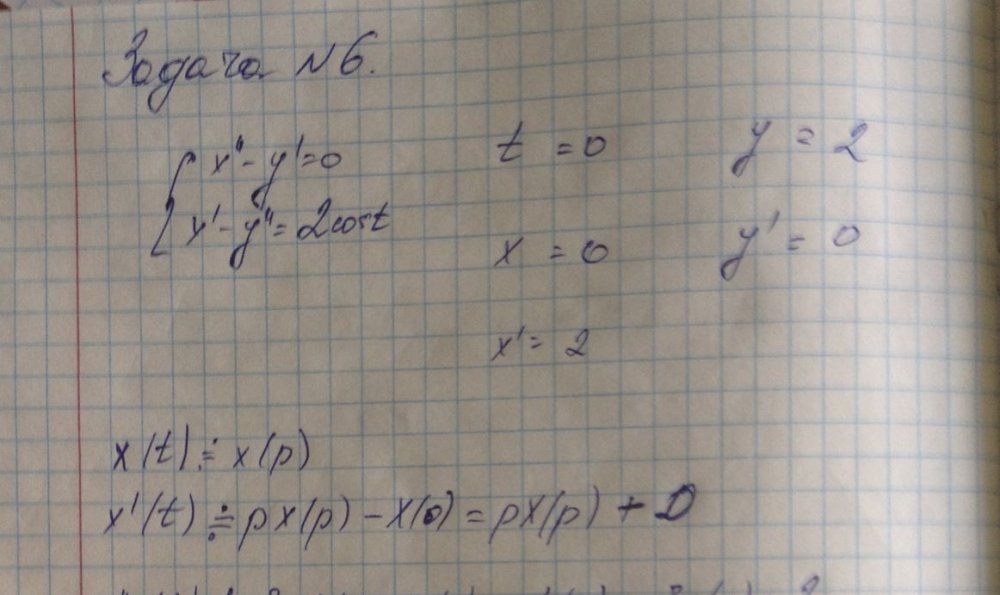 Задача №6.
x'' - y' = 0
x' - y'' = 2cost
t = 0
x = 0
x' = 2
y = 2
y' = 0
x(t) ≓ x(p)
x'(t) ≓ px(p) - X(0) = pX(p) + 0